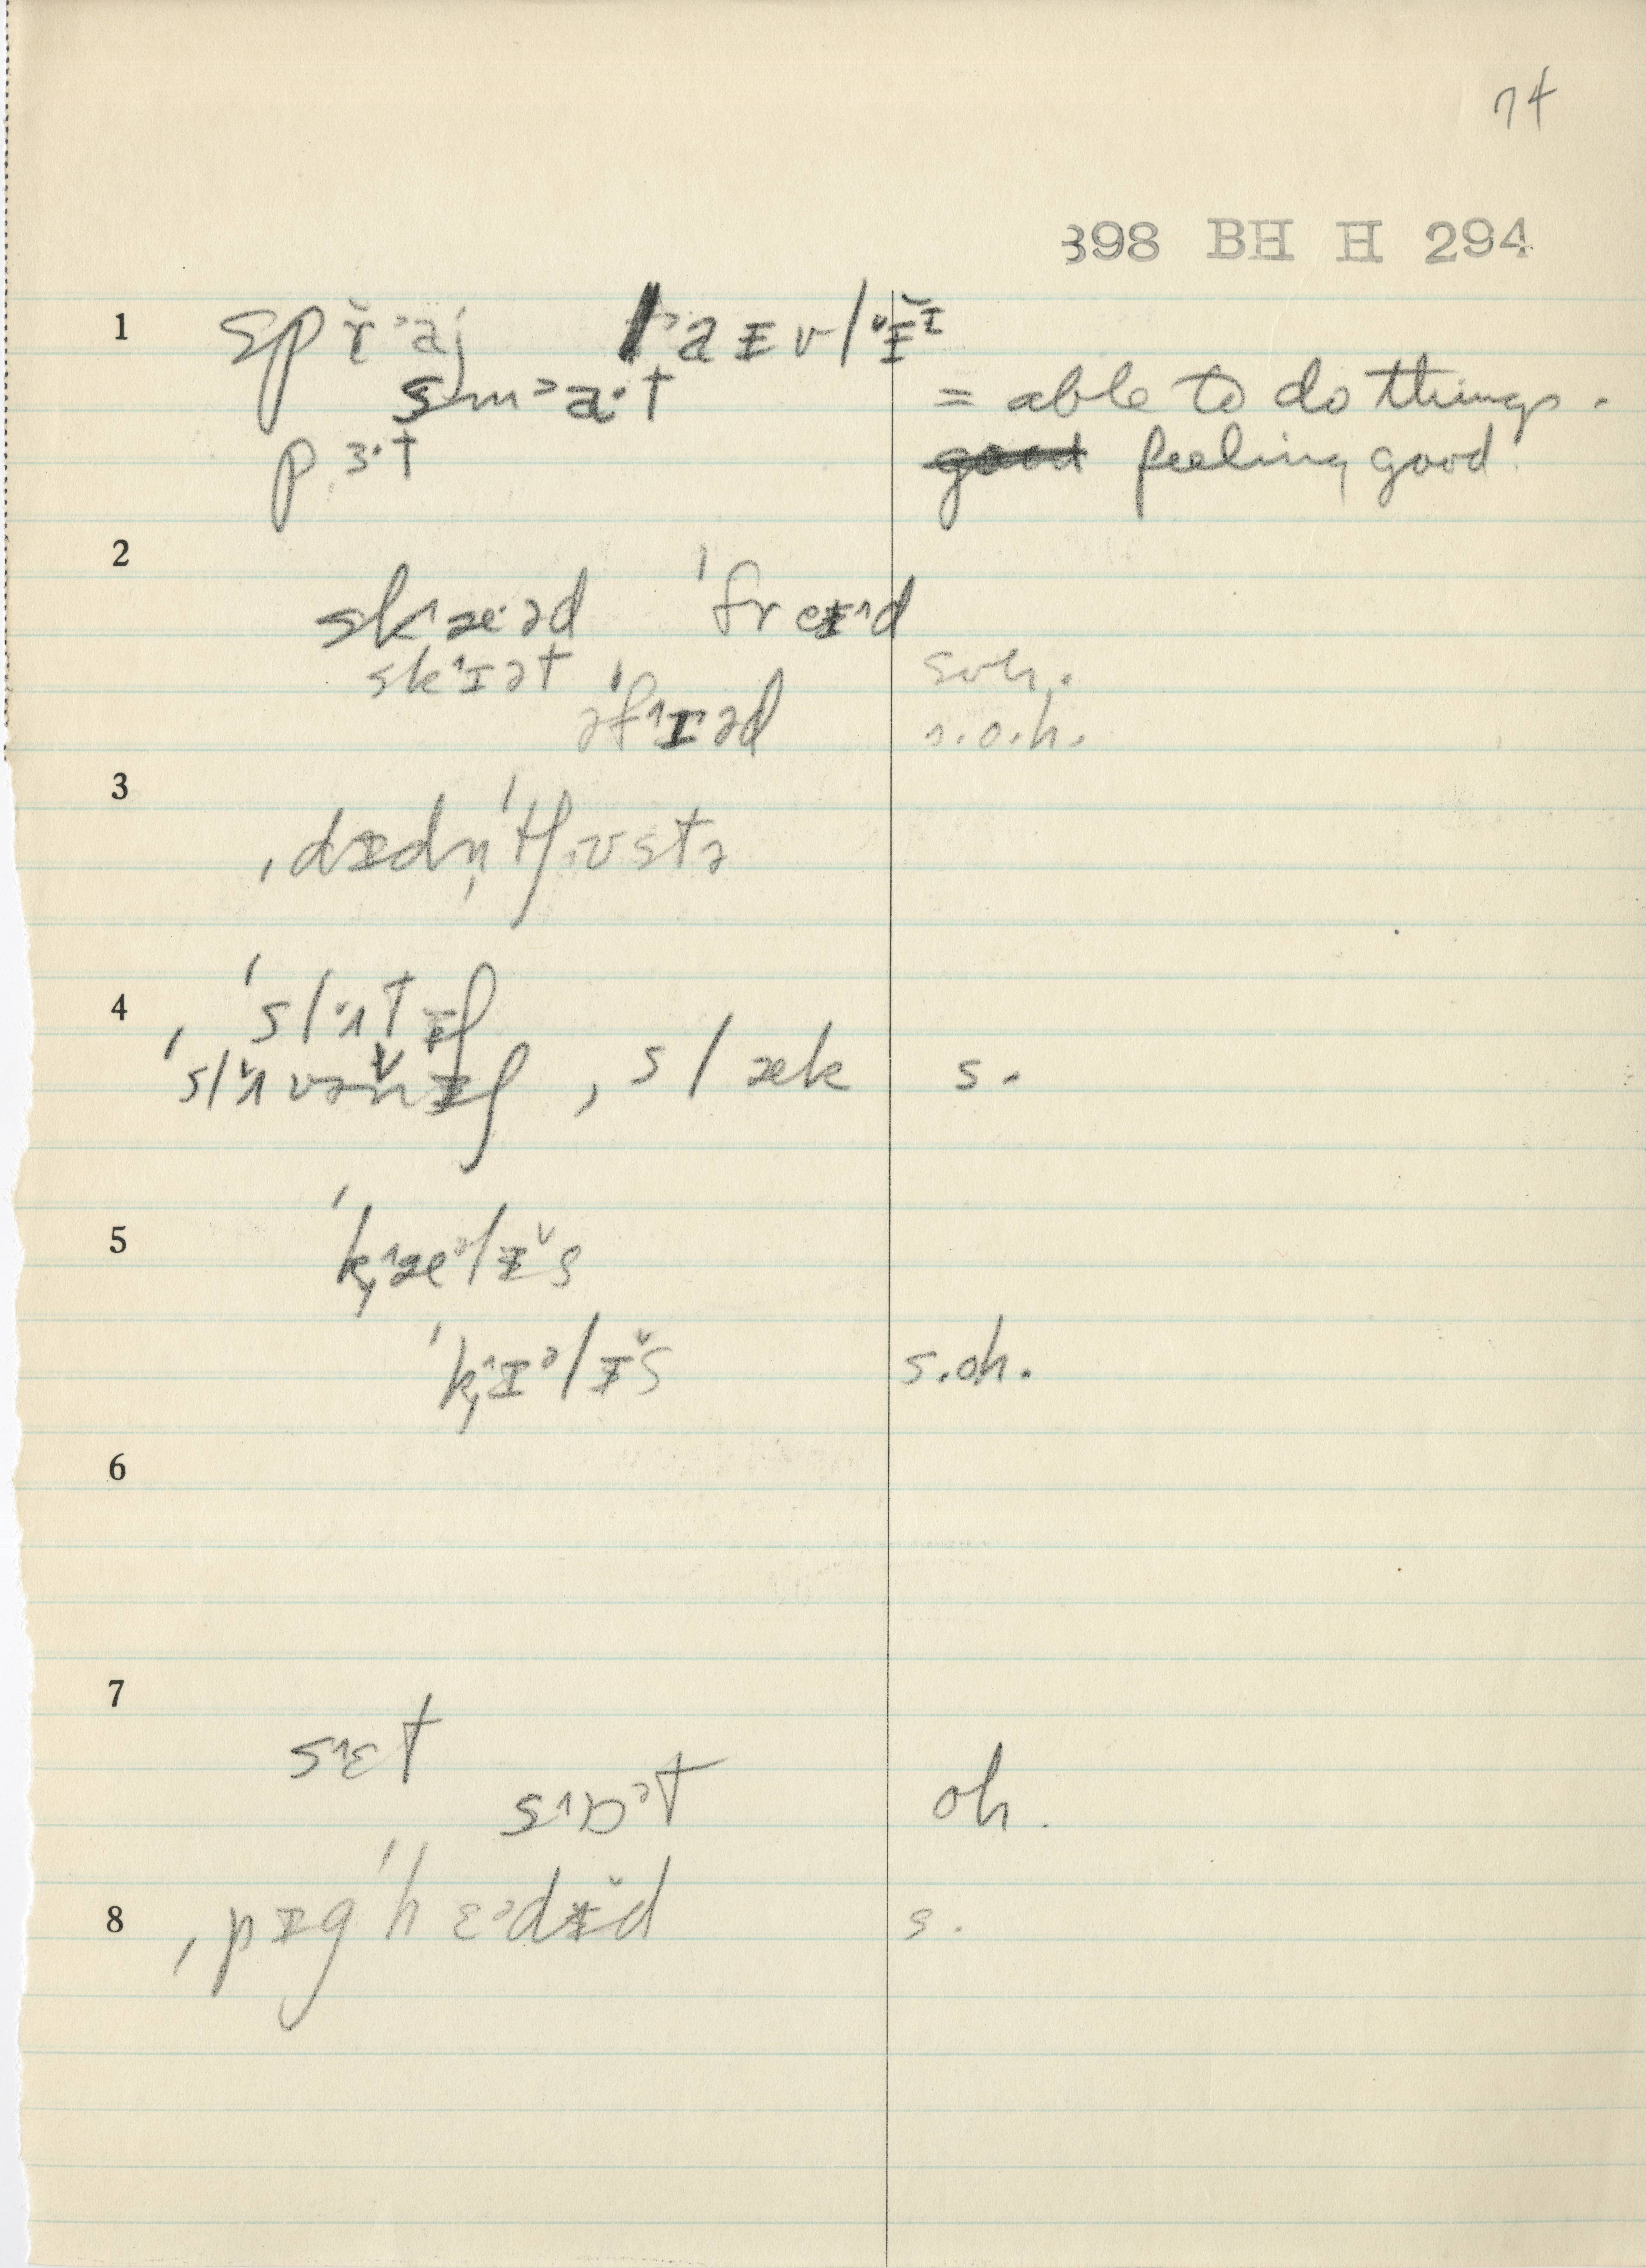 74
398 BH H 294
1 spr̆˃aj l˃aɪvlɪ̆ɪ
sm˃a·t = able to do things.
pɜ·t good feeling good.
2 sk˄æ·əd ˈfreɪ˄d
sk˄ɪət soh.
əˈf˄ɪəd s.o.h.
3 ˌdɪdn̩ˈtʃʋstə
4 ˌˈslʌtɪʃ
ˈslʌvənɪʃ , slæk s.
5 ˈk˄æᵊlɪ̆s
ˈk˄ɪᵊlɪ̆s s.oh.
6
7 s˄ɛt
s˄ɒᵊt oh.
8 ˌpɪgˈhɛᵊdɪ̆d s.